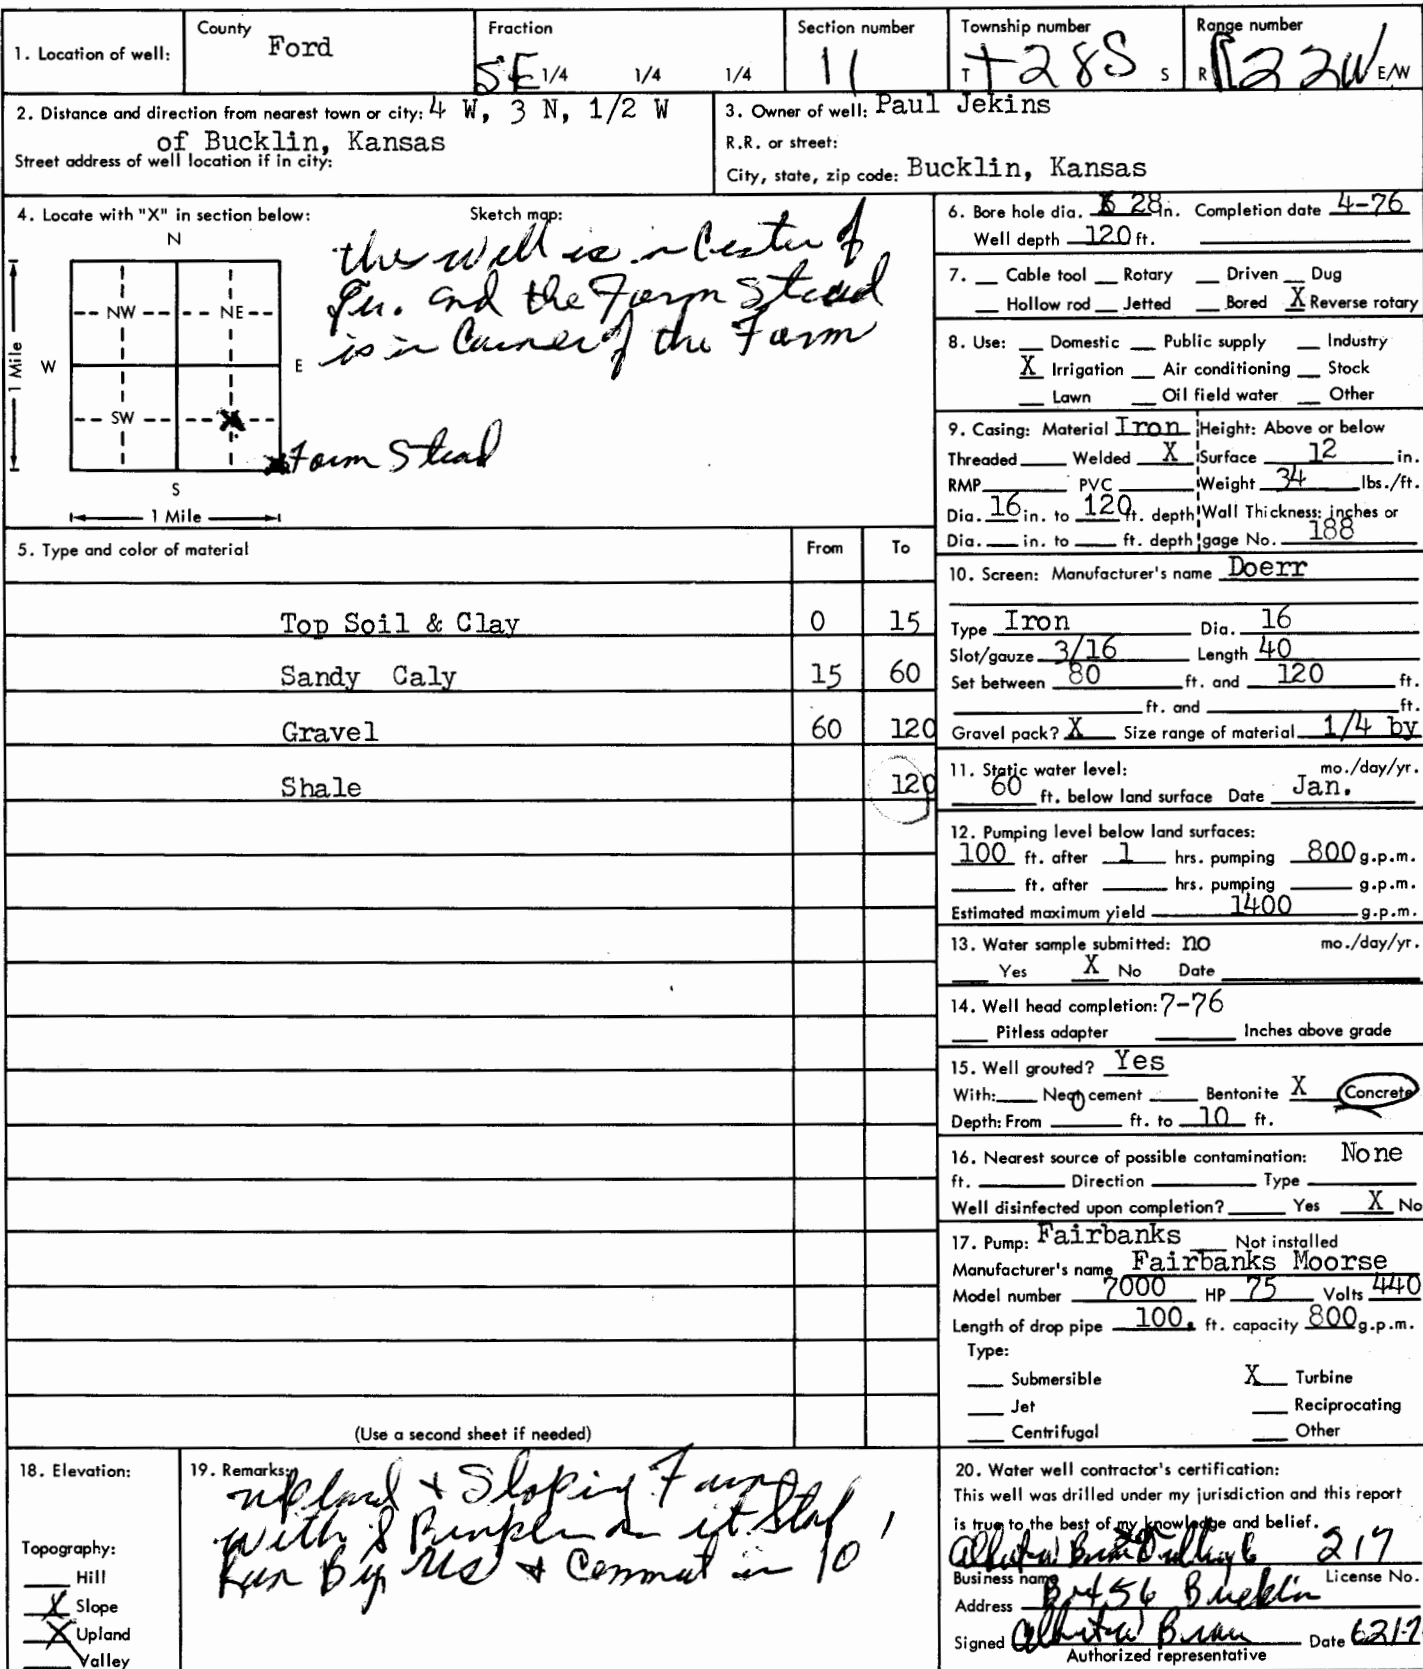 County Ford
Fraction
Section number
Township number
Range number
1. Location of well:
SE 1/4 1/4 1/4
11
T T28S S
R R22W E/W
2. Distance and direction from nearest town or city: 4 W, 3 N, 1/2 W
of Bucklin, Kansas
Street address of well location if in city:
3. Owner of well: Paul Jekins
R.R. or street:
City, state, zip code: Bucklin, Kansas
4. Locate with "X" in section below:
Sketch map:
N
the well is in Center of
Qu. and the Farm Stead
is in Corner of the Farm
NW NE
W E
1 Mile
SW X
X Farm Stead
S
1 Mile
5. Type and color of material From To
Top Soil & Clay 0 15
Sandy Caly 15 60
Gravel 60 120
Shale 120
(Use a second sheet if needed)
6. Bore hole dia. 28 in. Completion date 4-76
Well depth 120 ft.
7. Cable tool Rotary Driven Dug
Hollow rod Jetted Bored X Reverse rotary
8. Use: Domestic Public supply Industry
X Irrigation Air conditioning Stock
Lawn Oil field water Other
9. Casing: Material Iron Height: Above or below
Threaded Welded X Surface 12 in.
RMP PVC Weight 34 lbs./ft.
Dia. 16 in. to 120 ft. depth Wall Thickness: inches or
Dia. in. to ft. depth gage No. 188
10. Screen: Manufacturer's name Doerr
Type Iron Dia. 16
Slot/gauze 3/16 Length 40
Set between 80 ft. and 120 ft.
ft. and ft.
Gravel pack? X Size range of material 1/4 by
11. Static water level: mo./day/yr.
60 ft. below land surface Date Jan.
12. Pumping level below land surfaces:
100 ft. after 1 hrs. pumping 800 g.p.m.
ft. after hrs. pumping g.p.m.
Estimated maximum yield 1400 g.p.m.
13. Water sample submitted: no mo./day/yr.
Yes X No Date
14. Well head completion: 7-76
Pitless adapter Inches above grade
15. Well grouted? Yes
With: Neat cement Bentonite X Concrete
Depth: From ft. to 10 ft.
16. Nearest source of possible contamination: None
ft. Direction Type
Well disinfected upon completion? Yes X No
17. Pump: Fairbanks Not installed
Manufacturer's name Fairbanks Moorse
Model number 7000 HP 75 Volts 440
Length of drop pipe 100. ft. capacity 800 g.p.m.
Type:
Submersible X Turbine
Jet Reciprocating
Centrifugal Other
18. Elevation:
Topography:
Hill
X Slope
X Upland
Valley
19. Remarks:
upland & Sloping Farm
with it
Run By Us & Cemmut in 10'
20. Water well contractor's certification:
This well was drilled under my jurisdiction and this report
is true to the best of my knowledge and belief.
217
Business name License No.
Address B 456 Bucklin
Signed Date 621-7
Authorized representative